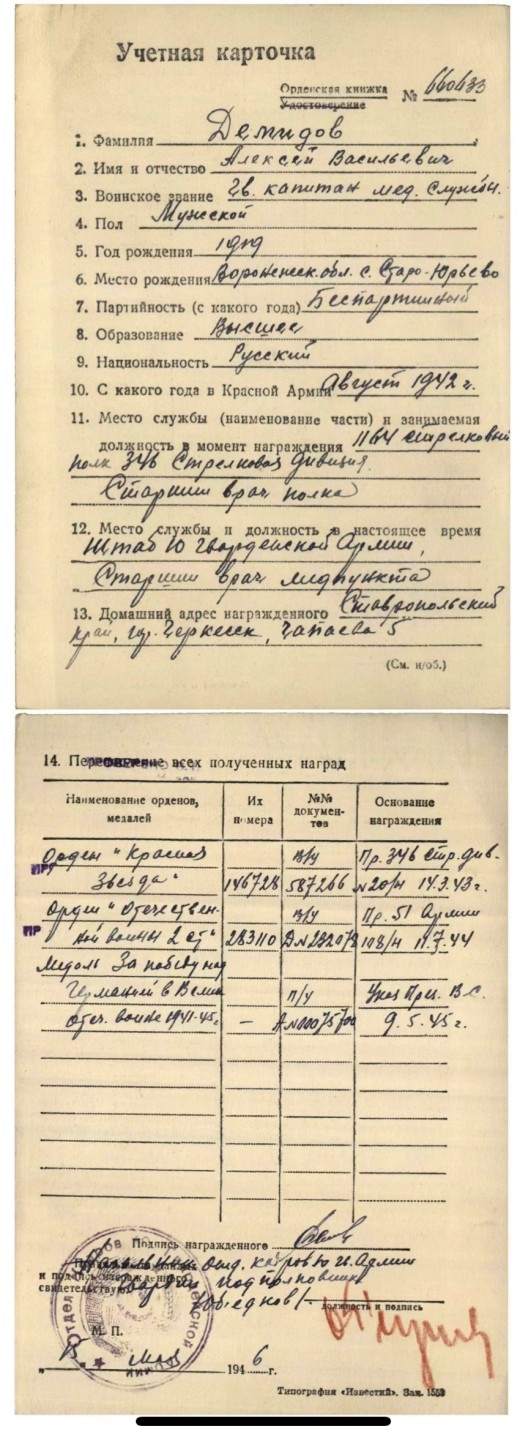 Учетная карточка
Орденская книжка
Удостоверение
№ 660633
1. Фамилия Демидов
2. Имя и отчество Алексей Васильевич
3. Воинское звание Гв. капитан мед. службы.
4. Пол Мужской
5. Год рождения 1919
6. Место рождения Воронежск. обл. с. Старо-Юрьево
7. Партийность (с какого года) Беспартийный
8. Образование Высшее
9. Национальность Русский
10. С какого года в Красной Армии Август 1942 г.
11. Место службы (наименование части) и занимаемая
должность в момент награждения 1164 стрелковый
полк 346 Стрелковая дивизия.
Старший врач полка
12. Место службы и должность в настоящее время
Штаб 10 Гвардейской Армии,
Старший врач медпункта
13. Домашний адрес награжденного Ставропольский
край, гор. Черкесск, Чапаева 5
(См. н/об.)
14. всех полученных наград
Наименование орденов, медалей
Их номера
№№ документов
Основание награждения
Орден "Красная в/у Пр. 346 стр. див.
Звезда" 146728 587266 №20/н 14.3.43 г.
Орден "Отечествен- в/у Пр. 51 Армии
ной войны 2 ст" 283110 108/н 11.7.44
Медаль За победу над
Германией в Велик п/у Указ През. В.С.
Отеч. войне 1941-45г. — 9.5.45 г.
Подпись награжденного
Начальник отд. кадров 10 гв. Армии
и подпись награжденного гвардии подполковник
свидетельствую
должность и подпись
М. П.
15. Мая 1946 г.
Типография «Известий». Зак. 1553